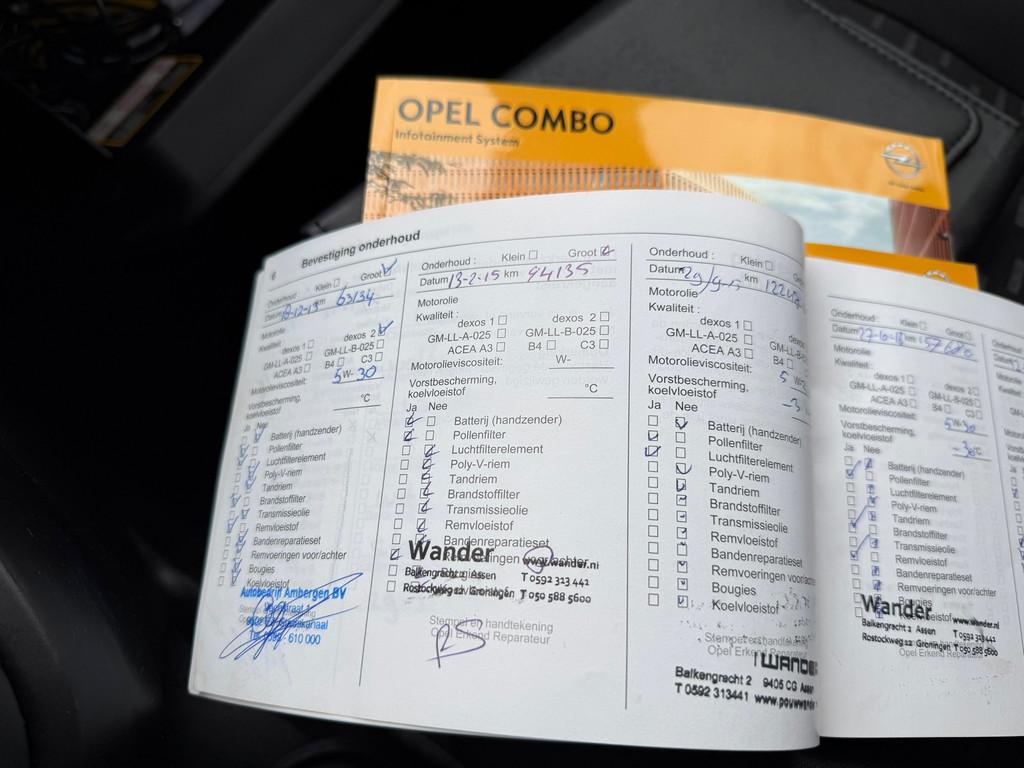 OPEL COMBO
Infotainment System
6 Bevestiging onderhoud
Onderhoud : Klein Groot
Datum 18-12-13 km 63134
Motorolie
Kwaliteit :
dexos 1 dexos 2
GM-LL-A-025 GM-LL-B-025
ACEA A3 B4 C3
Motorolieviscositeit: 5 W- 30
Vorstbescherming,
koelvloeistof °C
Ja Nee
Batterij (handzender)
Pollenfilter
Luchtfilterelement
Poly-V-riem
Tandriem
Brandstoffilter
Transmissieolie
Remvloeistof
Bandenreparatieset
Remvoeringen voor/achter
Bougies
Koelvloeistof
Autobedrijf Ambergen BV
610 000
Onderhoud : Klein Groot
Datum 13-2-15 km 94135
Motorolie
Kwaliteit :
dexos 1 dexos 2
GM-LL-A-025 GM-LL-B-025
ACEA A3 B4 C3
Motorolieviscositeit: W-
Vorstbescherming,
koelvloeistof °C
Ja Nee
Batterij (handzender)
Pollenfilter
Luchtfilterelement
Poly-V-riem
Tandriem
Brandstoffilter
Transmissieolie
Remvloeistof
Bandenreparatieset
Remvoeringen voor/achter
Wander www.wander.nl
Balkengracht 2 Assen T 0592 313 441
Rostockweg 12 Groningen T 050 588 5600
Stempel en handtekening
Opel Erkend Reparateur
Onderhoud : Klein
Datum km
Motorolie
Kwaliteit :
dexos 1
GM-LL-A-025 GM-LL-B
ACEA A3 B4
Motorolieviscositeit: 5 W-
Vorstbescherming,
koelvloeistof
Ja Nee
Batterij (handzender)
Pollenfilter
Luchtfilterelement
Poly-V-riem
Tandriem
Brandstoffilter
Transmissieolie
Remvloeistof
Bandenreparatieset
Remvoeringen voor/achter
Bougies
Koelvloeistof
Stempel en
Opel Erkend
WANDE
Balkengracht 2 9405 CG Assen
T 0592 313441 www.pouwwande
Onderhoud : Klein Groot
Datum km 57680
Motorolie
Kwaliteit :
dexos 1 dexos 2
GM-LL-A-025 GM-LL-B-025
ACEA A3 B4 C3
Motorolieviscositeit: 5 W- 30
Vorstbescherming,
koelvloeistof -30 °C
Ja Nee
Batterij (handzender)
Pollenfilter
Luchtfilterelement
Poly-V-riem
Tandriem
Brandstoffilter
Transmissieolie
Remvloeistof
Bandenreparatieset
Remvoeringen voor/achter
Bougies
Wander www.wander.nl
Balkengracht 2 Assen T 0592 313441
Rostockweg 12 Groningen T 050 588 5600
Opel Erkend Reparateur